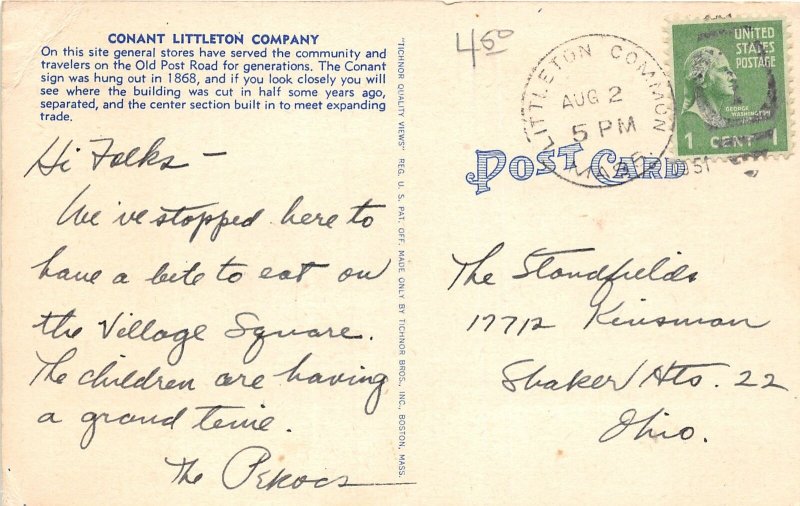 CONANT LITTLETON COMPANY
On this site general stores have served the community and
travelers on the Old Post Road for generations. The Conant
sign was hung out in 1868, and if you look closely you will
see where the building was cut in half some years ago,
separated, and the center section built in to meet expanding
trade.
Hi Folks —
We've stopped here to
have a bite to eat on
the Village Square.
The children are having
a grand time.
The
"TICHNOR QUALITY VIEWS" REG. U. S. PAT. OFF. MADE ONLY BY TICHNOR BROS., INC., BOSTON, MASS.
4 50
LITTLETON COMMON
AUG 2
5 PM
MASS.
1951
UNITED
STATES
POSTAGE
GEORGE
WASHINGTON
1 CENT 1
POST CARD
The Standfields
17712 Kinsman
Shaker Hts. 22
Ohio.